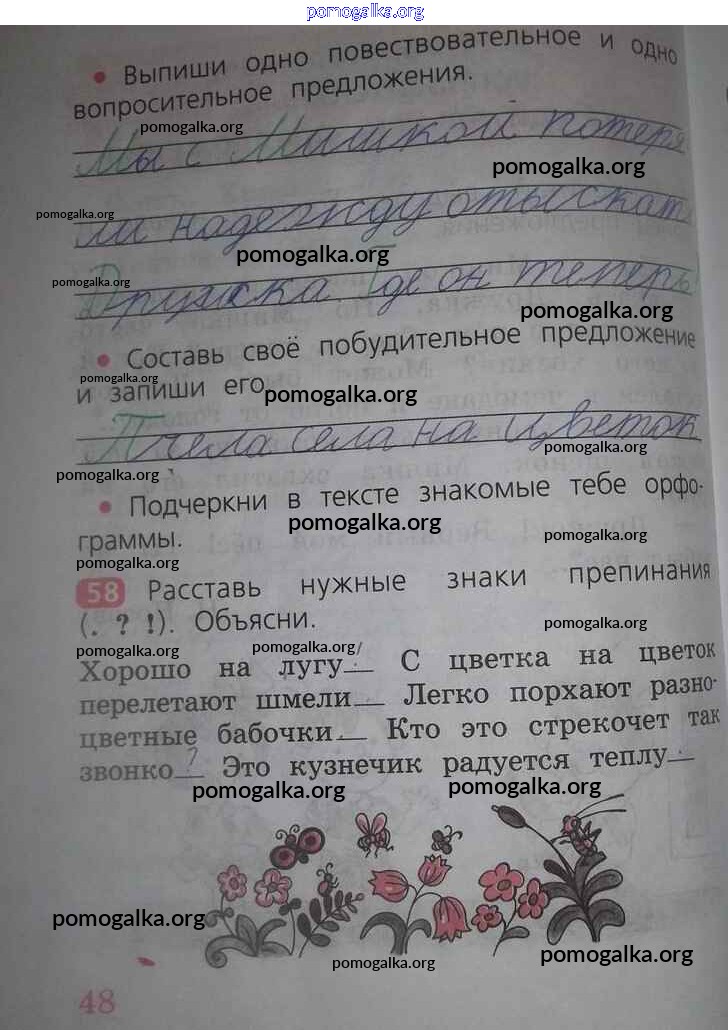 pomogalka.org
• Выпиши одно повествовательное и одно
вопросительное предложения.
pomogalka.org
Мы с Мишкой потеря
pomogalka.org
pomogalka.org
ли надежду отыскать
pomogalka.org
pomogalka.org
Дружка Где он теперь
pomogalka.org
• Составь своё побудительное предложение
pomogalka.org
и запиши его.
pomogalka.org
Пчела села на цветок
pomogalka.org
pomogalka.org
• Подчеркни в тексте знакомые тебе орфо-
pomogalka.org
граммы.
pomogalka.org
pomogalka.org
58 Расставь нужные знаки препинания
(. ? !). Объясни.
pomogalka.org
pomogalka.org
pomogalka.org
Хорошо на лугу__ С цветка на цветок
перелетают шмели__ Легко порхают разно-
цветные бабочки__ Кто это стрекочет так
звонко__? Это кузнечик радуется теплу__
pomogalka.org
pomogalka.org
pomogalka.org
pomogalka.org
pomogalka.org
48